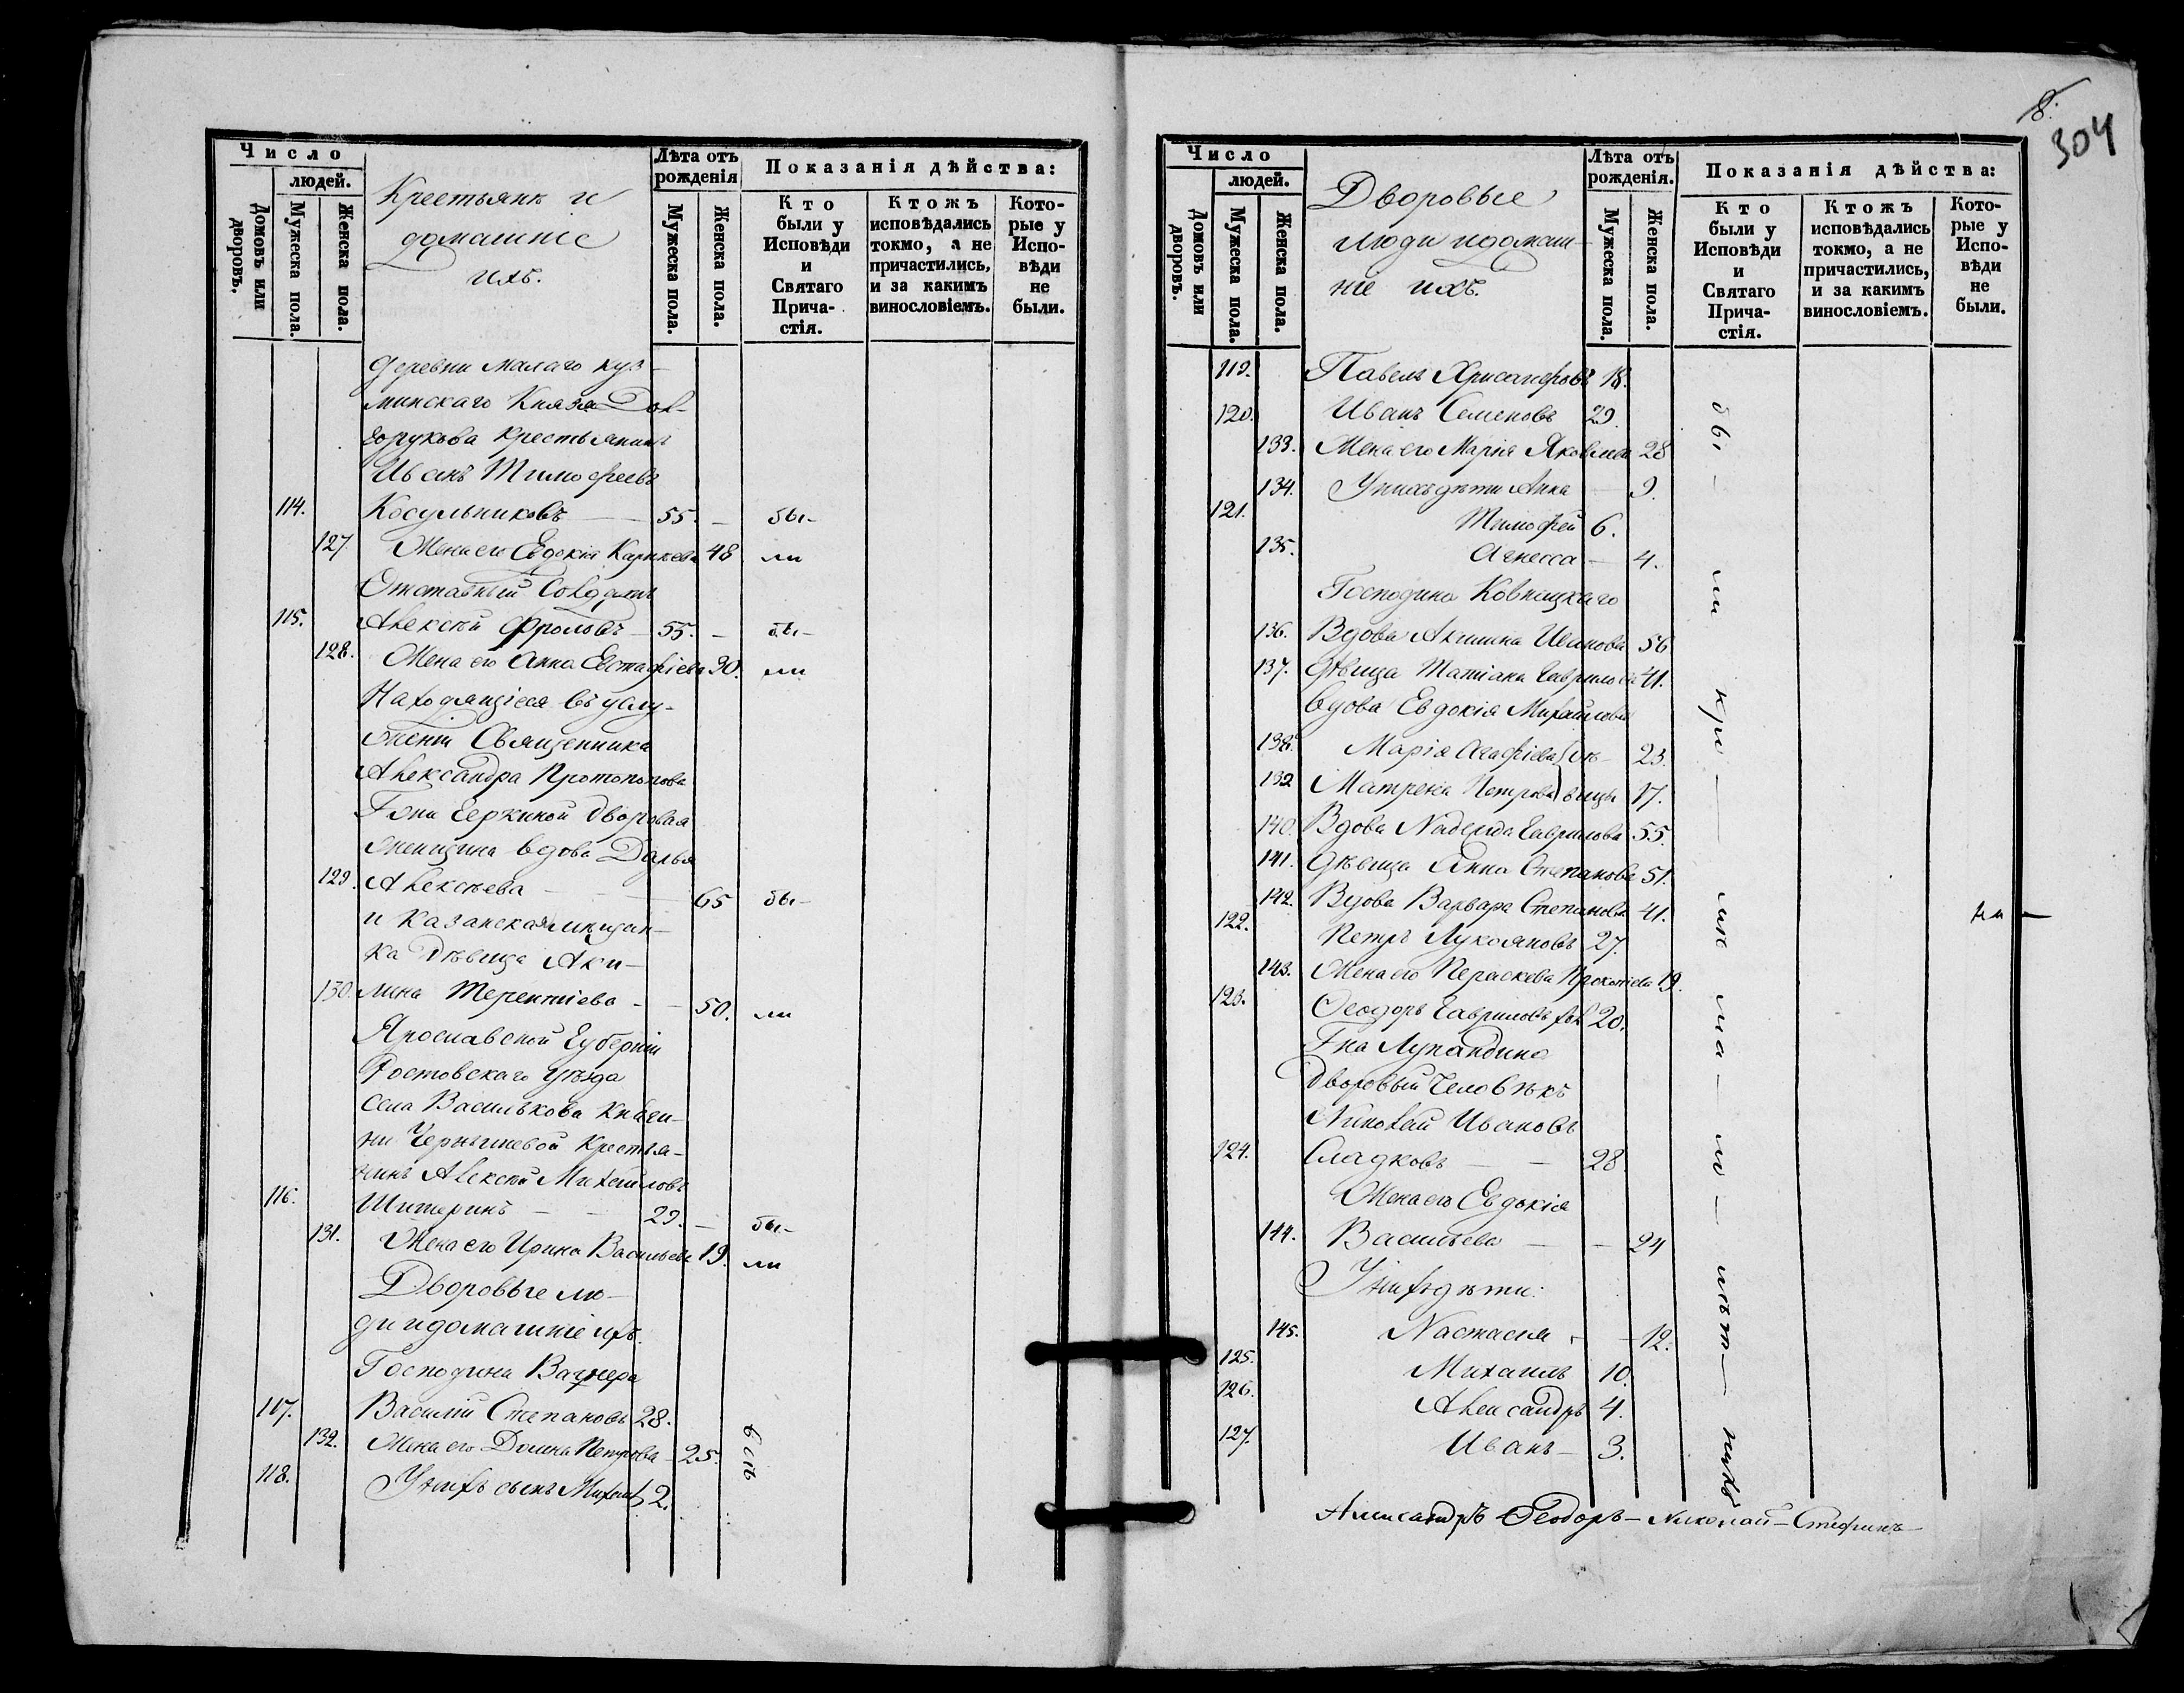 Число
людей.
Домовъ или дворовъ.
Мужеска пола.
Женска пола.
Крестьянъ и
домашніе
ихъ.
Лѣта отъ рожденія
Мужеска пола.
Женска пола.
Показанія дѣйства:
Кто были у Исповѣди и Святаго Прича-стія.
Ктожъ исповѣдались токмо, а не причастились, и за какимъ винословіемъ.
Кото-рые у Испо-вѣди не были.
деревни малаго куз-
минскаго Князя Дол-
горукова крестьянинъ
Иванъ Тимофеевъ
114. Косульниковъ — 55. — бы-
127. Жена его Евдокія 48 ли
Отставный Солдатъ
115. Алексѣй Фроловъ — 55. — бы-
128. Жена его Анна Евстафіева 30. ли
Находящіеся въ услу-
женіи Священника
Александра Протопопова
Гжи дворовая
женщина вдова Дарья
129. Алексѣева — 65 бы-
и Казанская мѣщан-
ка Дѣвица Аки-
130. лина Терентіева - - 50. ли
Ярославской Губерніи
Ростовскаго уѣзда
села Василькова Княги-
ни Чернышевой Крестья-
нинъ Алексѣй Михайловъ
116. Шитеринъ — — 29. — бы-
131. Жена его Ирина Васильева 19. ли
Дворовые лю-
ди и домашніе ихъ.
Господина Вагнера
117. Василій Степановъ 28.
132. Жена его Домна Петрова — 25.
118. У нихъ сынъ Михаилъ 2.
всѣ
8.
304
Число
людей.
Домовъ или дворовъ.
Мужеска пола.
Женска пола.
Дворовые
люди и домаш-
ніе ихъ.
Лѣта отъ рожденія.
Мужеска пола.
Женска пола.
Показанія дѣйства:
Кто были у Исповѣди и Святаго Прича-стія.
Ктожъ исповѣдались токмо, а не причастились, и за какимъ винословіемъ.
Кото-рые у Испо-вѣди не были.
119. Павелъ Хрисанфовъ 18.
120. Иванъ Семеновъ 29.
133. Жена его Марія Яковлева 28
134. У нихъ дѣти Анна — 9.
121. Тимофей 6.
135. Агнесса — 4.
Господина Ковницкаго
136. Вдова Акилина Иванова 56
137. дѣвица Татіана Гаврилова 41.
вдова Евдокія Михайлова
138. Марія Агафіева} дѣ- 23.
139 Матрена Петрова} вицы 17.
140. Вдова Надежда Гаврилова 55.
141. дѣвица Анна Степанова 51.
142. Вдова Варвара Степанова 41.
122. Петръ Лукояновъ 27.
143. Жена его Параскева Прокопіева 19.
123. Ѳеодоръ Гавриловъ хол. 20.
Гна Лупандина
дворовый человѣкъ
Николай Ивановъ
124. Сладковъ — — 28
Жена его Евдокія
144. Васильева — — 24
У нихъ дѣти:
145. Настасія - — 12.
125. Михаилъ 10.
126. Александръ 4.
127. Иванъ — 3.
бы — ли кро — мѣ ма — ло — лѣт — нихъ
Александръ Ѳеодоръ — Николай — Стефанъ